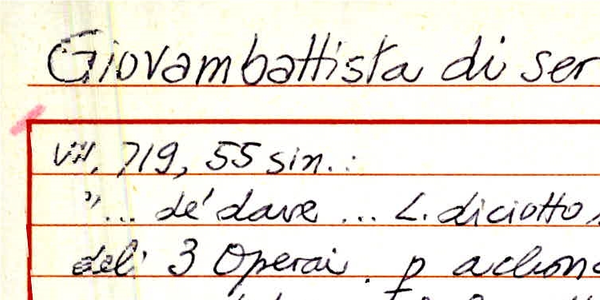 Giovambattista di ser
VII, 719, 55 sin.:
"... de' dare ... L. diciotto,
deli 3 Operai. p